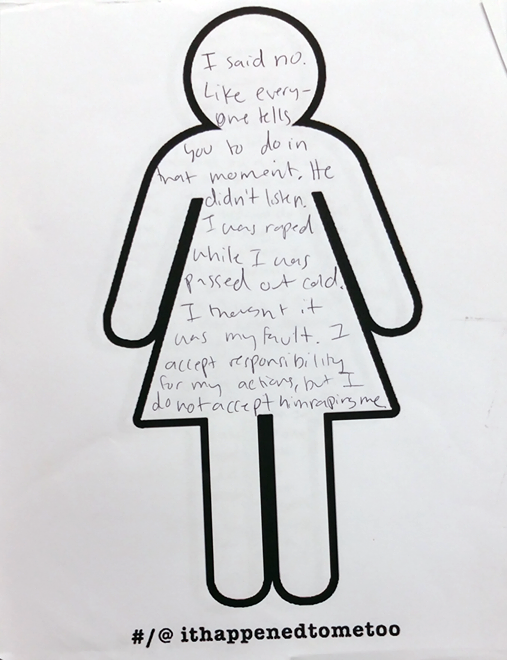 I said no.
Like every-
one tells
you to do in
that moment. He
didn't listen.
I was raped
while I was
passed out cold.
I thought it
was my fault. I
accept responsibility
for my actions, but I
do not accept him raping me.
#/@ ithappenedtometoo